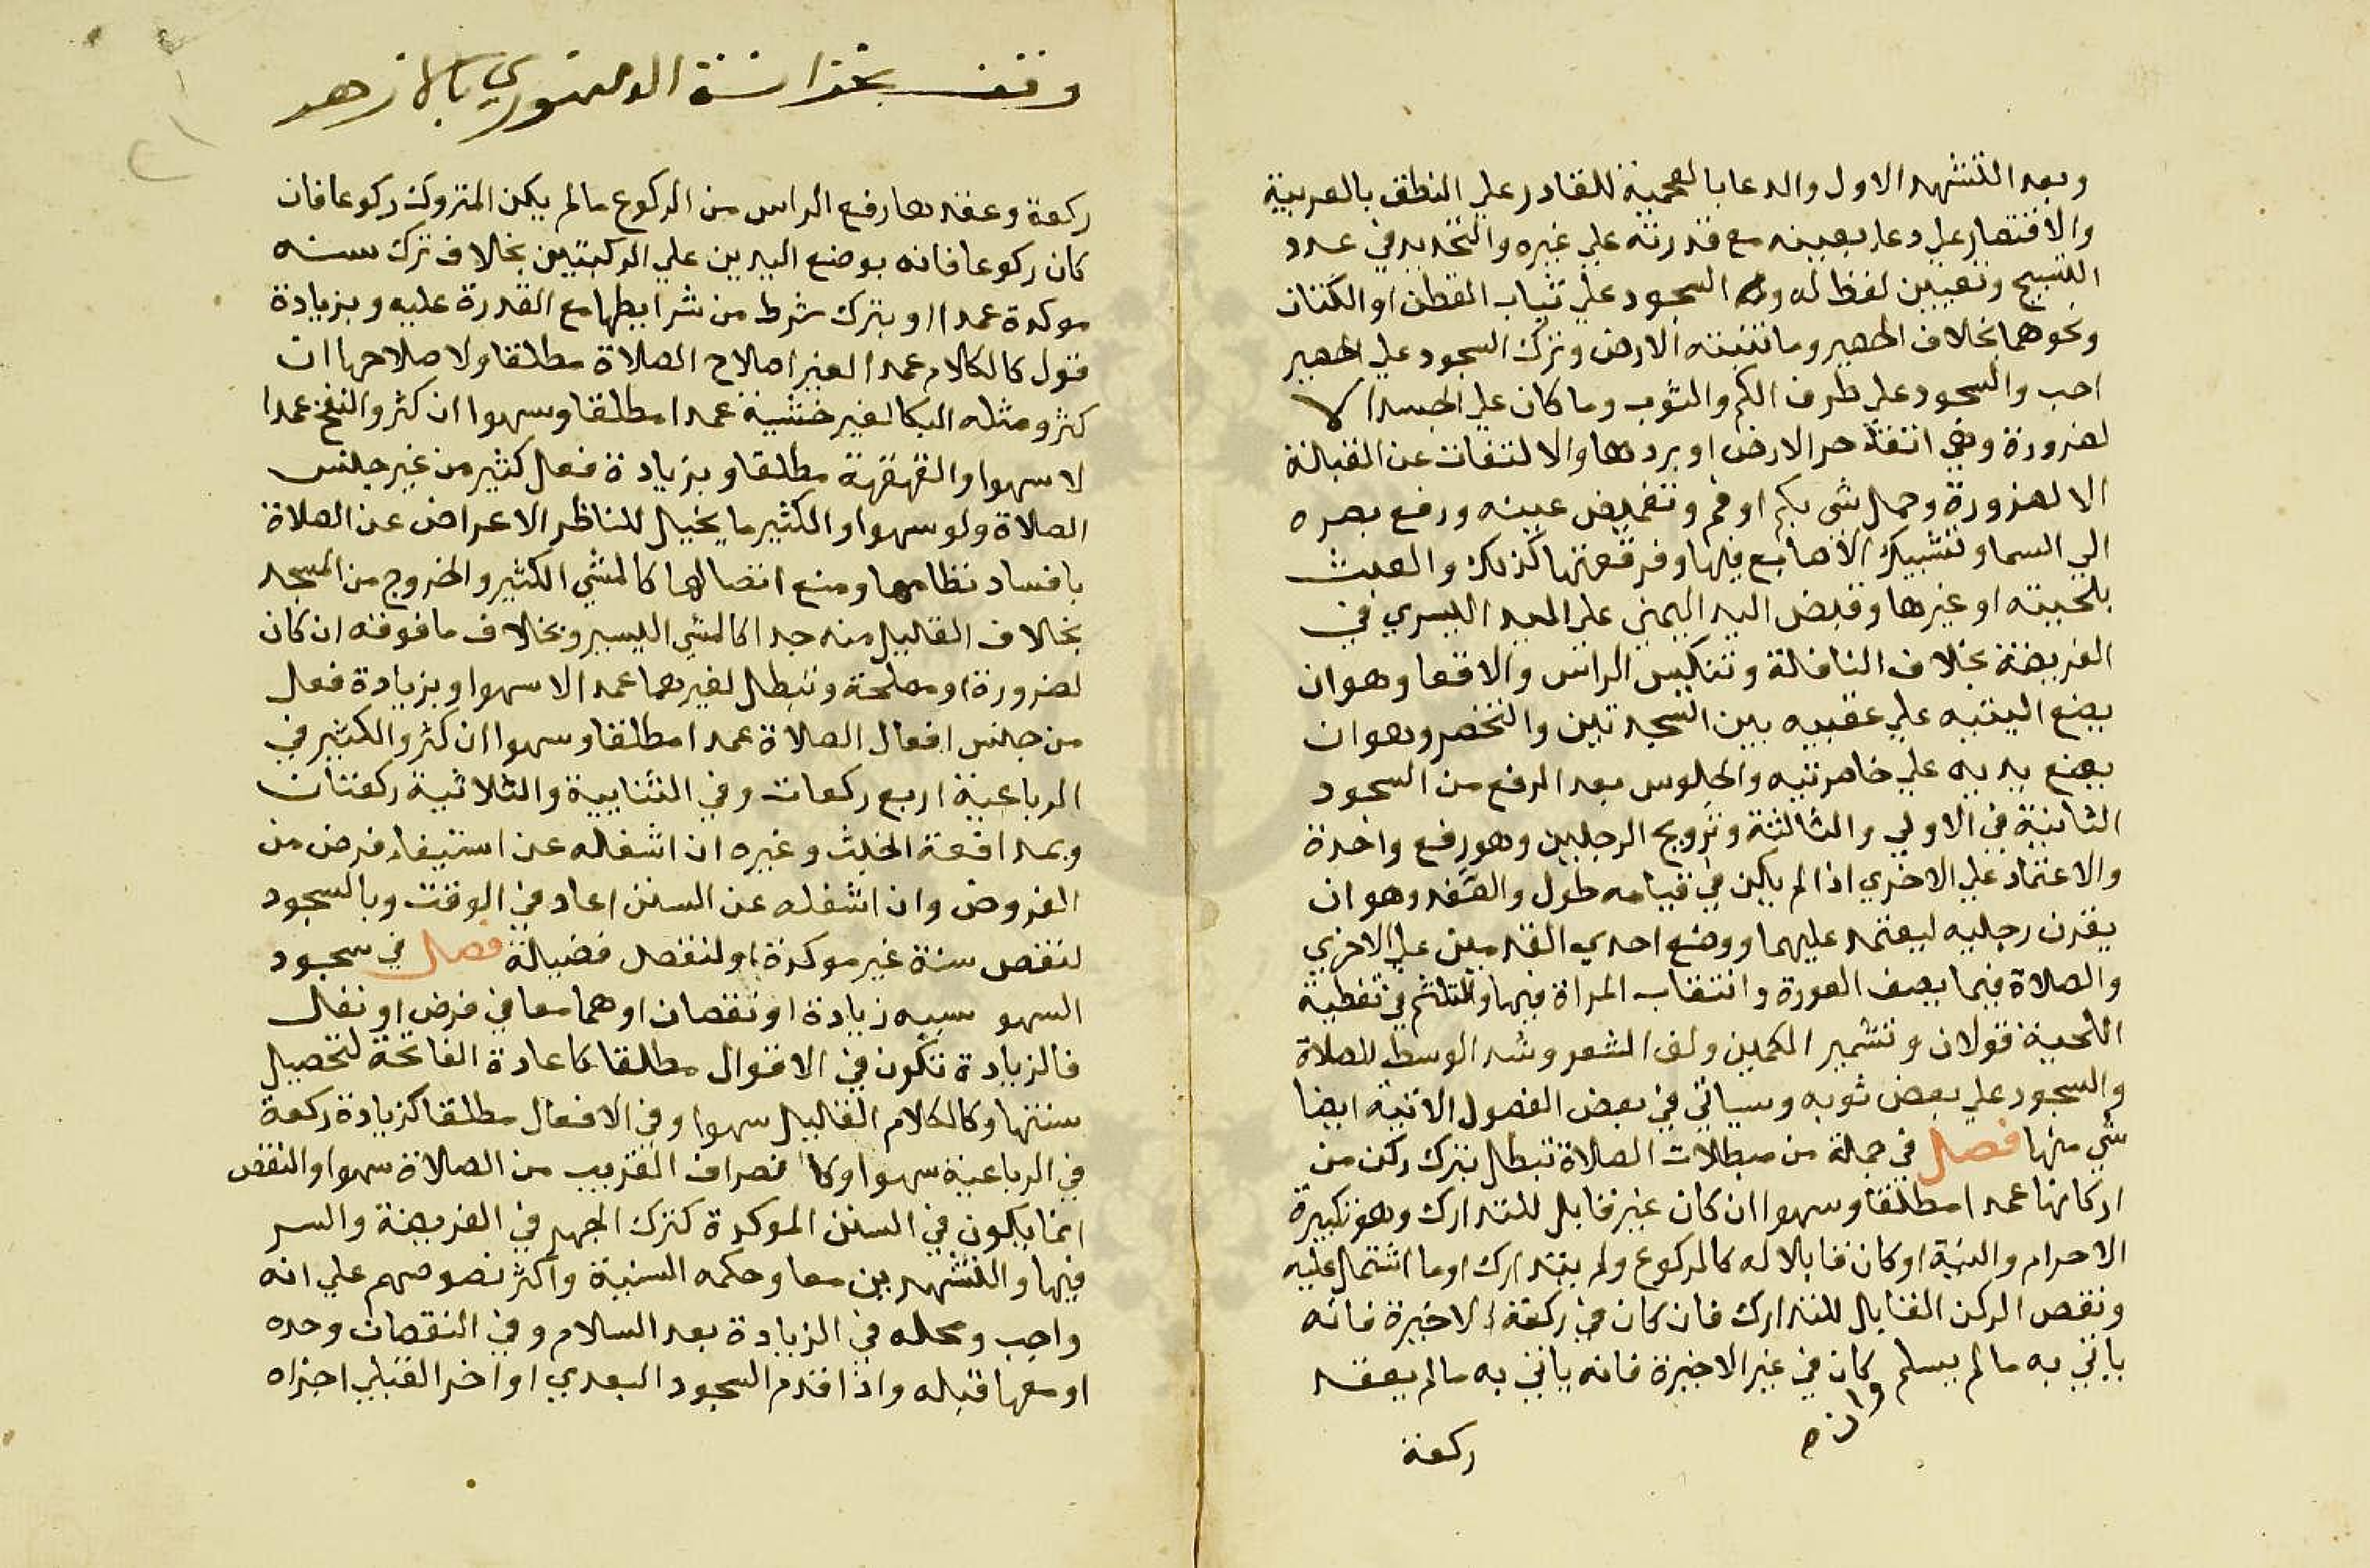 وبعد التشهد الاول والدعا بالعجمية للقادر علي النطق بالعربية
والاقتصار علي دعا بعينه مع قدرته علي غيره والتحديد في عدد
التسبيح وتعيين لفظ له و السجود علي ثياب القطن او الكتان
ونحوهما بخلاف الحصير وما تنبته الارض وترك السجود علي الحصير
احب والسجود علي طرف الكم والثوب وما كان علي الجسد الا
لضرورة وهي اتقا حر الارض او بردها والالتفات عن القبلة
الا لضرورة وحمل شي بكم او فم وتغميض عينه ورفع بصره
الي السما وتشبيك الاصابع فيها وفرقعتها كذلك والعبث
بلحيته او غيرها وقبض اليد اليمني علي اليد اليسري في
الفريضة بخلاف النافلة وتنكيس الراس والاقعا وهو ان
يضع اليتيه علي عقبيه بين السجدتين والتخصر وهو ان
يضع يديه علي خاصرتيه والجلوس بعد الرفع من السجود
الثانية في الاولي والثالثة وترويح الرجلين وهو رفع واحدة
والاعتماد علي الاخري اذا لم يكن في قيامه طول والصفد وهو ان
يقرن رجليه ليعتمد عليهما ووضع احدي القدمين علي الاخري
والصلاة فيما يصف العورة وانتقاب المراة فيها والتلثم في تغطية
اللحية قولان وتشمير الكمين ولف الشعر وشد الوسط للصلاة
والسجود علي بعض ثوبه وسياتي في بعض الفصول الاتية ايضا
شي منها فصل في جملة من مبطلات الصلاة تبطل بترك ركن من
اركانها عمدا مطلقا وسهوا ان كان غير قابل للتدارك وهو تكبيرة
الاحرام والنية او كان قابلا له كالركوع ولم يتدارك او ما اشتمل عليه
ونقص الركن القابل للتدارك فان كان في ركعة الاخيرة فانه
ياتي به ما لم يسلم وان كان في غير الاخيرة فانه ياتي به ما لم يعقد
ركعة
وقف بخزانة الدمنهوري بالازهر
ركعة وعقدها رفع الراس من الركوع ما لم يكن المتروك ركوعا فان
كان ركوعا فانه بوضع اليدين علي الركبتين بخلاف ترك سنه
موكدة عمدا او بترك شرط من شرايطها مع القدرة عليه وبزيادة
قول كالكلام عمدا لغير اصلاح الصلاة مطلقا ولاصلاحها ان
كثر ومثله البكا لغير خشية عمدا مطلقا وسهوا ان كثر والنفخ عمدا
لا سهوا والقهقهة مطلقا وبزيادة فعل كثير من غير جنس
الصلاة ولو سهوا والكثير ما يخيل للناظر الاعراض عن الصلاة
بافساد نظامها ومنع اتصالها كالمشي الكثير والخروج من المسجد
بخلاف القليل منه جدا كالمشي اليسير وبخلاف ما فوقه ان كان
لضرورة او مصلحة وتبطل لغيرهما عمدا لا سهوا وبزيادة فعل
من جنس افعال الصلاة عمدا مطلقا وسهوا ان كثر والكثير في
الرباعية اربع ركعات وفي الثنايية والثلاثية ركعتان
وبمدافعة الخبث وغيره ان اشغله عن استيفا فرض من
الفروض وان اشغله عن السنن اعاد في الوقت وبالسجود
لنقص سنة غير موكدة او لنقص فضيلة فصل في سجود
السهو سببه زيادة او نقصان او هما معا في فرض او نفل
فالزيادة تكون في الاقوال مطلقا كاعادة الفاتحة لتحصيل
سنتها وكالكلام القليل سهوا وفي الافعال مطلقا كزيادة ركعة
في الرباعية سهوا وكانصراف القريب من الصلاة سهوا والنقص
انما يكون في السنن الموكدة كترك الجهر في الفريضة والسر
فيها والتشهدين معا وحكمه السنية واكثر نصوصهم علي انه
واجب ومحله في الزيادة بعد السلام وفي النقصان وحده
او معها قبله واذا قدم السجود البعدي او اخر القبلي اجزاه